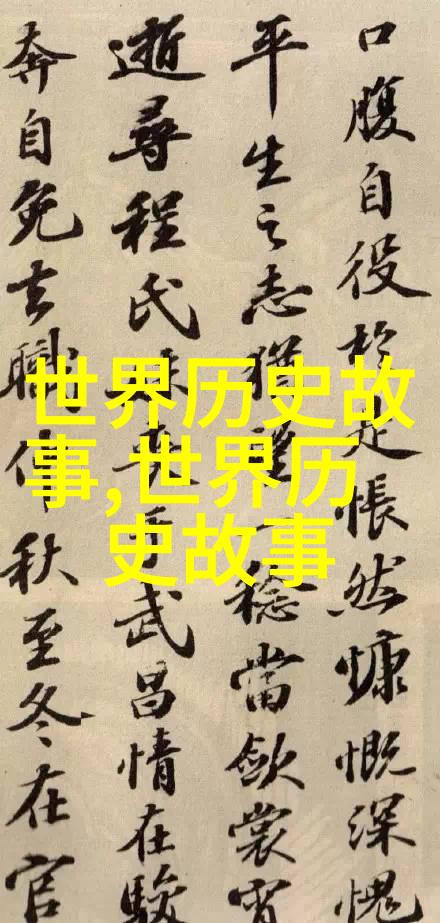 口腹自役於是悵然慷慨深愧
平生之志猶望一稔當歛裳宵
逝尋程氏妹喪于武昌情在駿
奔自免去職仲秋至冬在官
世界历史故
事,世界历
史故事